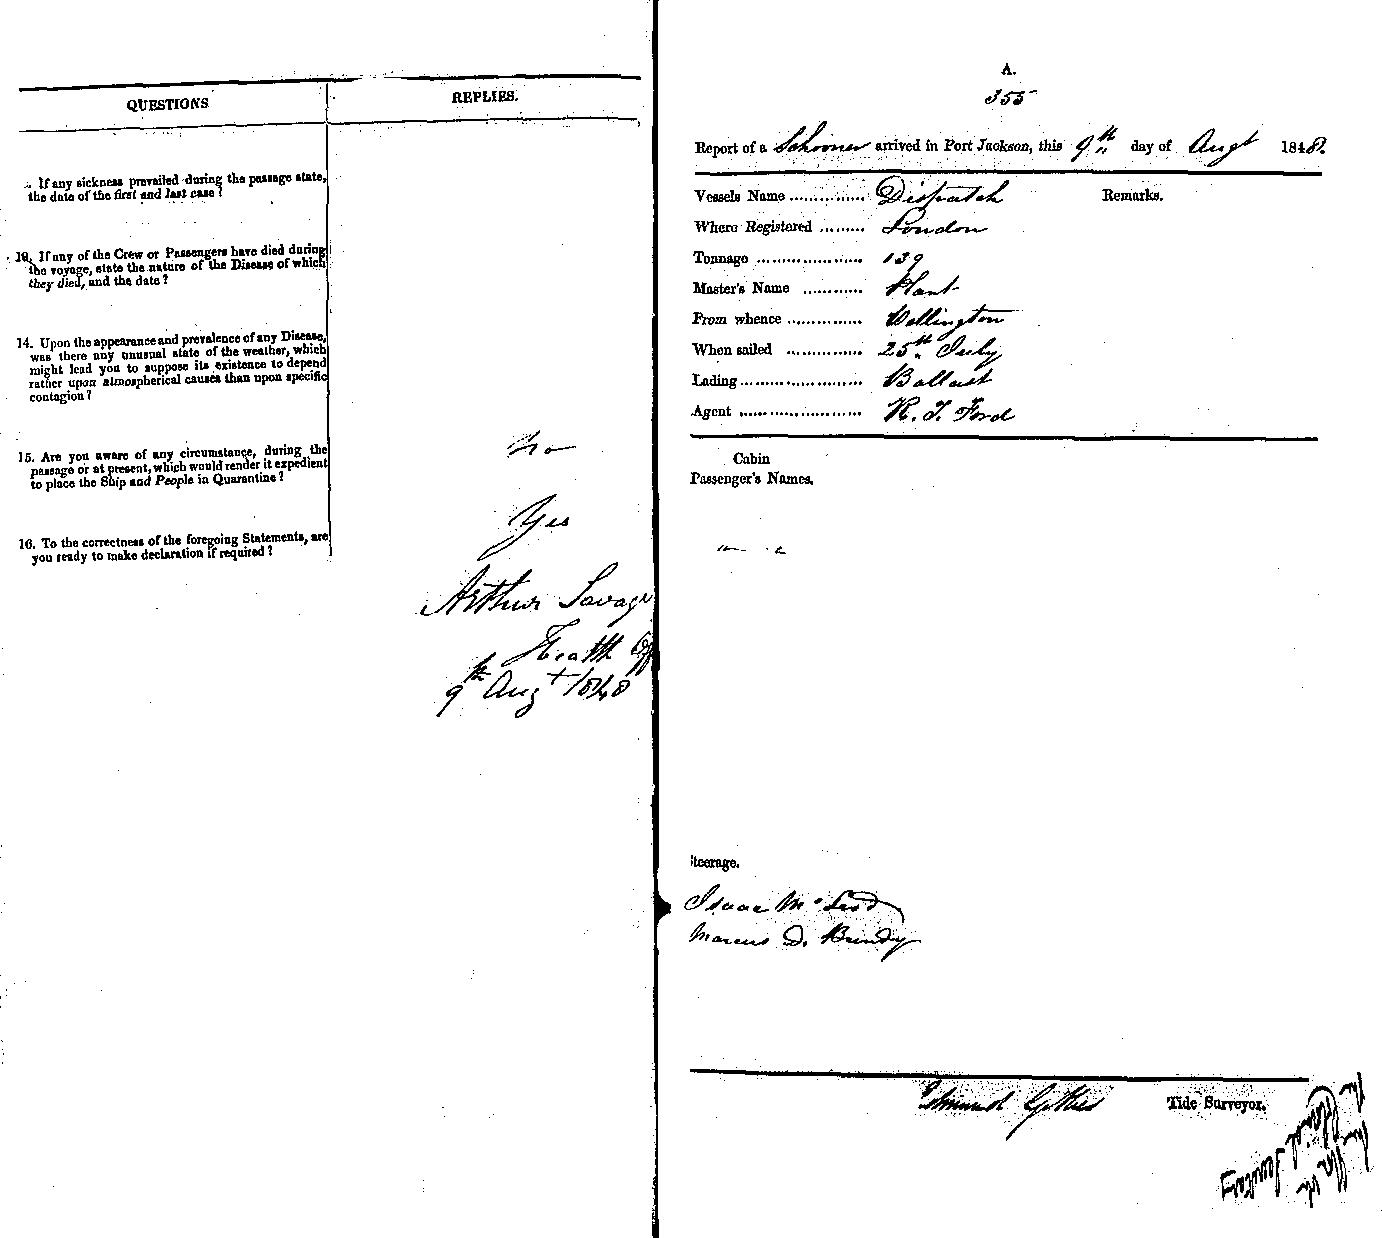 QUESTIONS
REPLIES.
If any sickness prevailed during the passage state,
the date of the first and last case?
If any of the Crew or Passengers have died during
the voyage, state the nature of the Disease of which
they died, and the date?
14. Upon the appearance and prevalence of any Disease,
was there any unusual state of the weather, which
might lead you to suppose its existence to depend
rather upon atmospherical causes than upon specific
contagion?
15. Are you aware of any circumstance, during the
passage or at present, which would render it expedient
to place the Ship and People in Quarantine?
No
16. To the correctness of the foregoing Statements, are
you ready to make declaration if required?
Yes
Arthur Savage
Health Off
9th Augt 1848
A.
355
Report of a Schooner arrived in Port Jackson, this 9th day of Augt 1848.
Vessels Name .............. Dispatch
Remarks.
Where Registered ......... London
Tonnage ..................... 139
Master's Name ............ Hant
From whence .............. Wellington
When sailed .............. 25th July
Lading....................... Ballast
Agent ....................... R. T. Ford
Cabin
Passenger's Names.
Steerage.
Isaac McLeod
Marcus D. Brundy
Edmund Tide Surveyor.